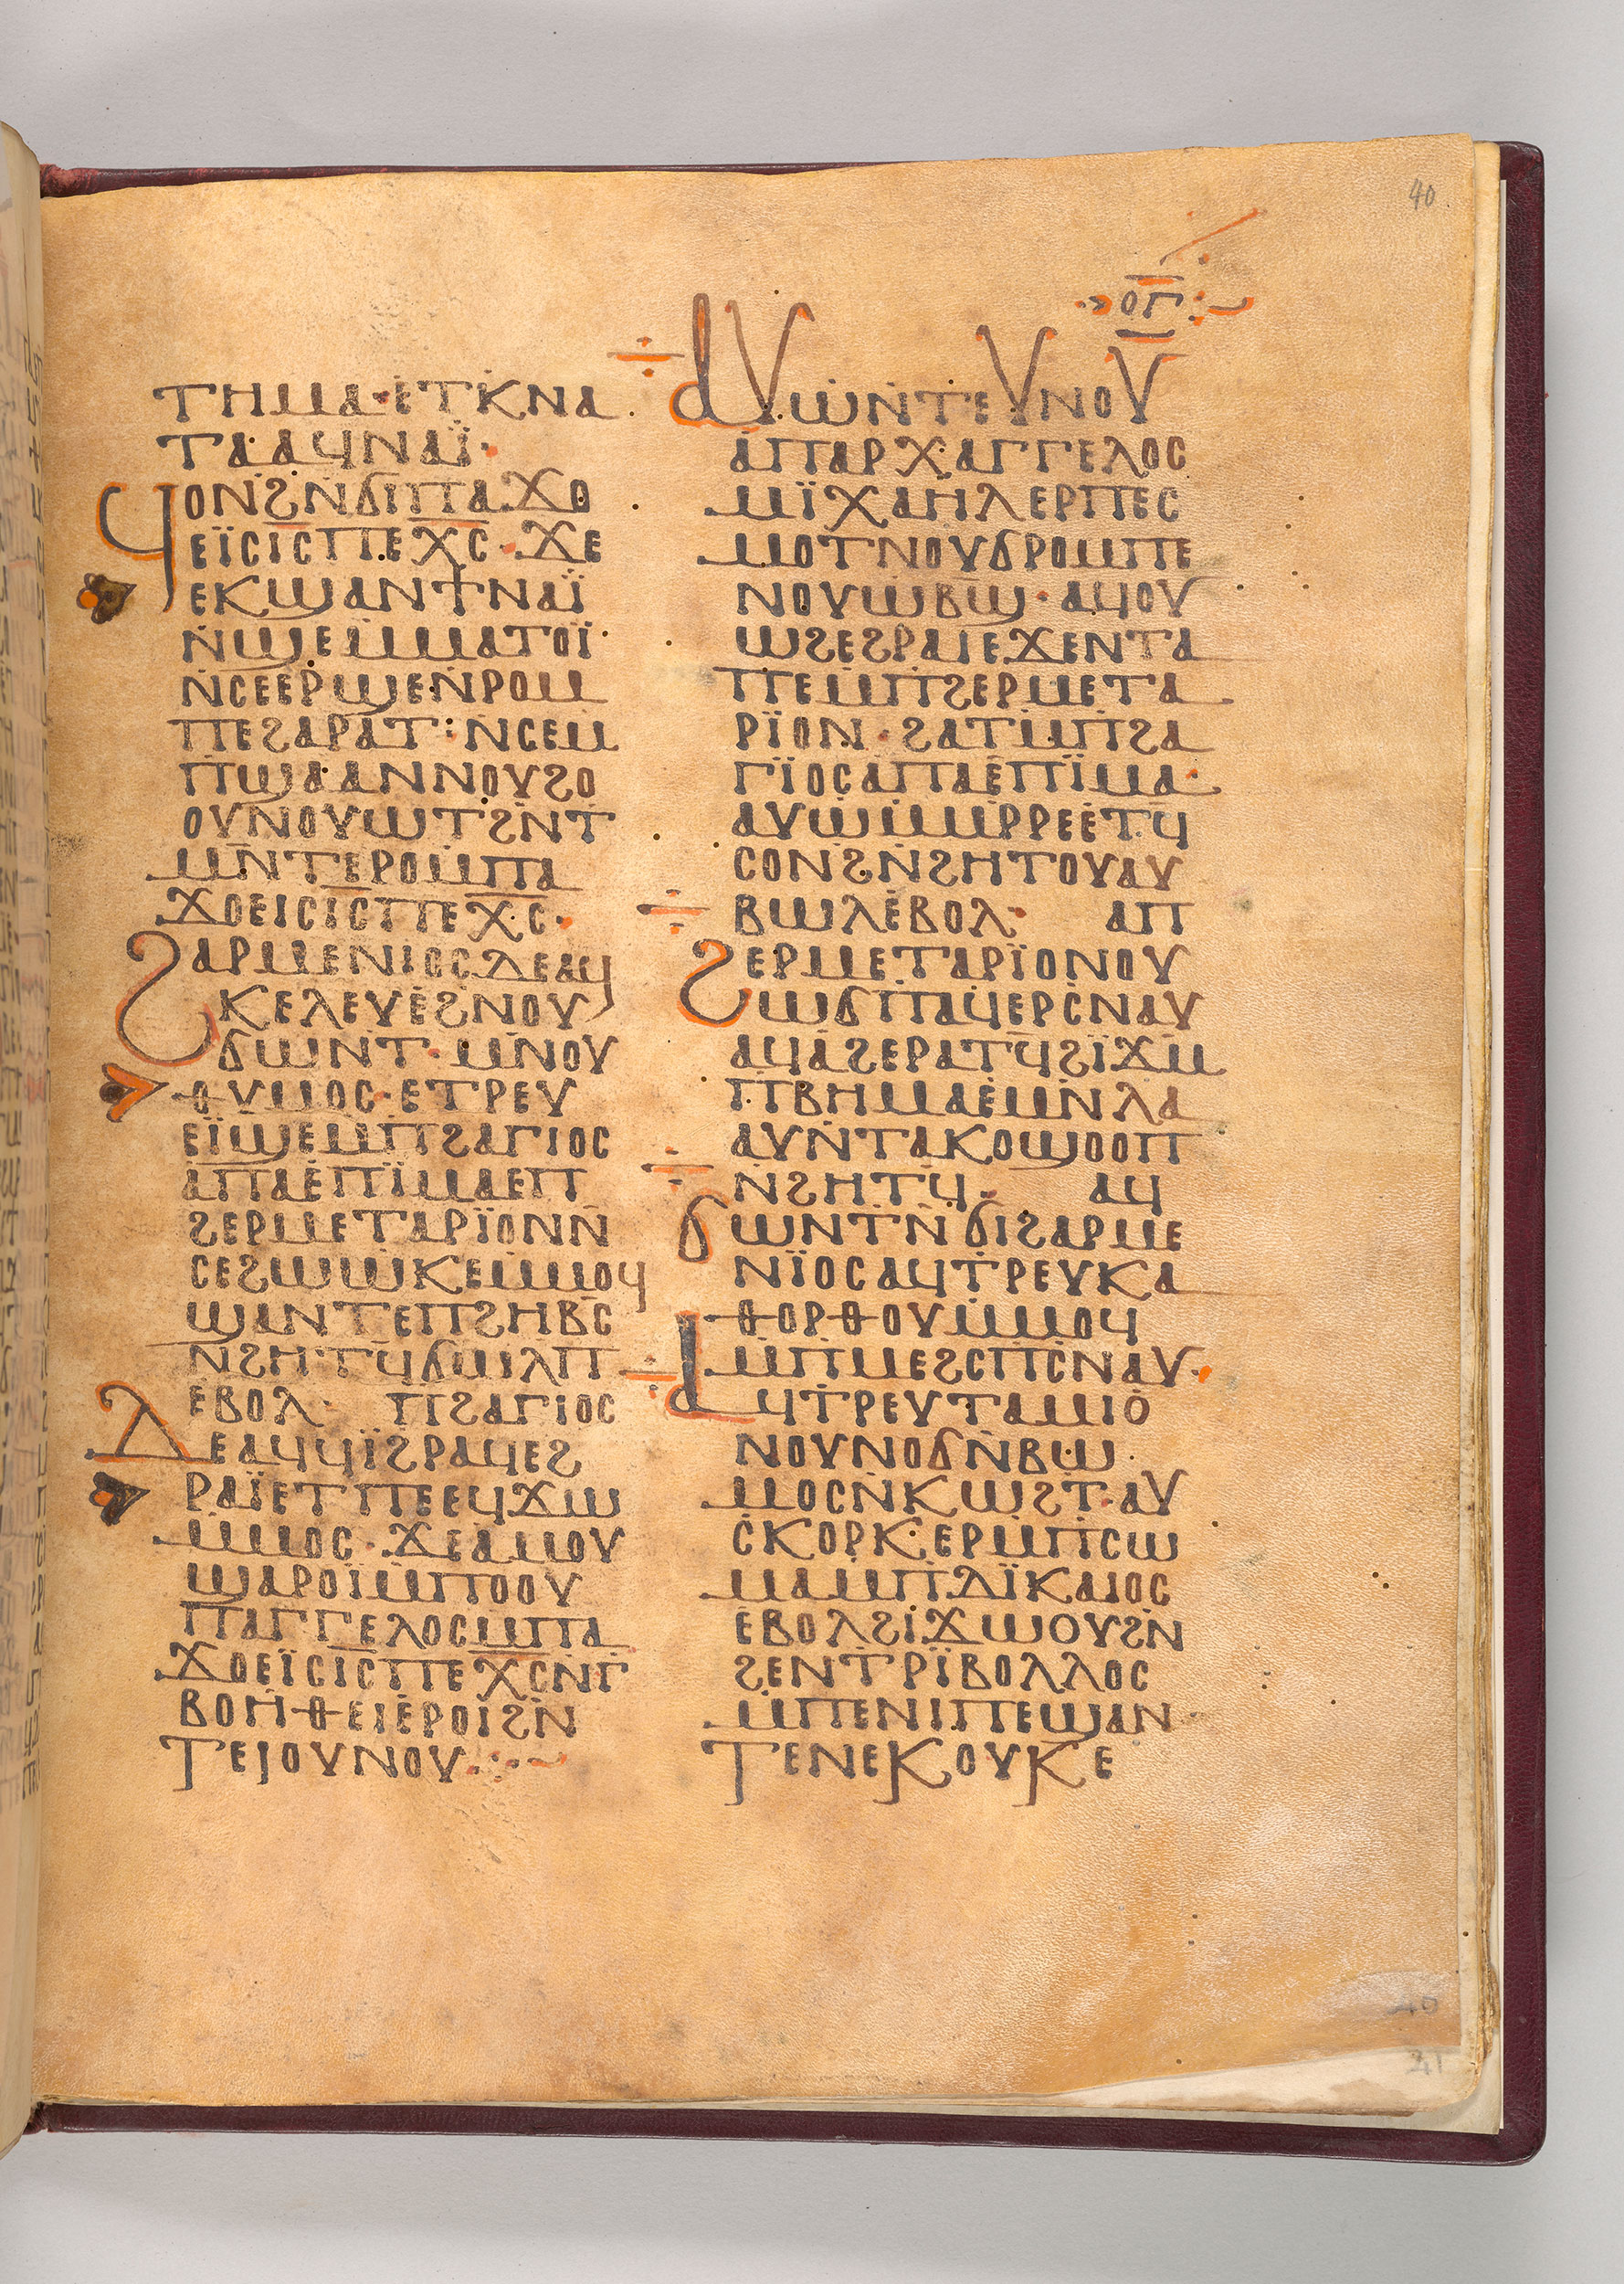 40
ⲟⲅ
ⲧⲏⲙⲁ·ⲉⲧⲕⲛⲁ
ⲧⲁⲁϥⲛⲁⲓ̈·
ϥⲟⲛϩⲛ̄ϭⲓⲡⲁϫⲟ
ⲉⲓ̈ⲥⲓ̅ⲥ̅ⲡⲉⲭ̅ⲥ̅·ϫⲉ
ⲉⲕϣⲁⲛϯⲛⲁⲓ̈
ⲛ̇ϣⲉⲙ̇ⲙⲁⲧⲟⲓ̈·
ⲛ̇ⲥⲉⲉⲣϣⲉⲛ̇ⲣⲟⲙ
ⲡⲉϩⲁⲣⲁⲧ:ⲛ̇ⲥⲉⲙ
ⲡϣⲁ·ⲁⲛⲛⲟⲩϩⲟ
ⲟⲩⲛⲟⲩⲱⲧϩⲛ̄ⲧ
ⲙⲛ̄ⲧⲉⲣⲟⲙ̇ⲡⲁ
ϫⲟⲉⲓⲥⲓ̅ⲥ̅ⲡⲉⲭ̅ⲥ̅·
ϩⲁⲣⲙⲉⲛⲓⲟⲥⲇⲉⲁϥ
ⲕⲉⲗⲉⲩⲉ̇ϩⲛⲟⲩ
ϭⲱⲛⲧ·ⲙⲛ̄ⲟⲩ
ⲑⲩⲙⲟⲥ·ⲉⲧⲣⲉⲩ
ⲉⲓ̈ϣⲉⲙ̇ⲡϩⲁⲅⲓⲟⲥ
ⲁⲡⲁⲉ̇ⲡⲓ̈ⲙⲁⲉⲡ
ϩⲉⲣⲙⲉⲧⲁⲣⲓ̈ⲟⲛⲛ̇
ⲥⲉϩⲱⲱⲕⲉⲙ̇ⲙⲟϥ
ϣⲁⲛⲧⲉⲡϩⲏⲃⲥ̄
ⲛϩⲏⲧϥ̄ϭⲱⲗⲡ
ⲉⲃⲟⲗ· ⲡϩⲁⲅⲓⲟⲥ
ⲇⲉⲁϥϥⲓ̈ϩⲣⲁϥⲉϩ
ⲣⲁⲓ̈ⲉⲧⲡⲉⲉϥϫⲱ
ⲙ̇ⲙⲟⲥ·ϫⲉⲁ̇ⲙⲟⲩ
ϣⲁⲣⲟⲓ̈ⲙ̇ⲡⲟⲟⲩ
ⲡⲁⲅⲅⲉⲗⲟⲥⲙ̇ⲡⲁ
ϫⲟⲉⲓ̈ⲥⲓ̅ⲥ̅ⲡⲉⲭ̅ⲥ̅ⲛ̄ⲅ
ⲃⲟⲏ̇ⲑⲉⲓⲉ̇ⲣⲟⲓ̈ϩⲛ̄
ⲧⲉⲓⲟⲩⲛⲟⲩ·
ⲁⲩⲱⲛ̇ⲧⲉⲩⲛⲟⲩ
ⲁ̇ⲡⲁⲣⲭⲁⲅⲅⲉⲗⲟⲥ
ⲙⲓ̈ⲭⲁⲏ̇ⲗⲉⲣⲡⲉⲥ
ⲙⲟⲧⲛⲟⲩϭⲣⲟⲙⲡⲉ
ⲛⲟⲩⲱⲃϣ̄·ⲁϥⲟⲩ
ⲱϩⲉϩⲣⲁⲓⲉϫⲉⲛⲧⲁ
ⲡⲉⲙ̇ⲡϩⲉⲣⲙⲉⲧⲁ
ⲣⲓ̈ⲟⲛ·ϩⲁⲧⲙ̇ⲡϩⲁ
ⲅⲓ̈ⲟⲥⲁⲡⲁⲉ̇ⲡⲓ̈ⲙⲁ·
ⲁⲩⲱⲙ̇ⲙⲣ̇ⲣⲉⲉ̇ⲧϥ̄
ⲥⲟⲛϩⲛ̇ϩⲏⲧⲟⲩⲁⲩ
ⲃⲱⲗⲉ̇ⲃⲟⲗ· ⲁⲡ
ϩⲉⲣⲙⲉⲧⲁⲣⲓ̈ⲟⲛⲟⲩ
ⲱϭⲡ̄ⲁϥⲉⲣⲥ̄ⲛⲁⲩ
ⲁϥⲁ̇ϩⲉⲣⲁⲧϥ̄ϩⲓ̈ϫⲙ̄
ⲡⲃⲏⲙⲁⲉ̇ⲙⲛ̄ⲗⲁ
ⲁⲩⲛ̇ⲧⲁⲕⲟϣⲟⲟⲡ
ⲛ̇ϩⲏⲧϥ̄· ⲁϥ
ϭⲱⲛⲧ̄ⲛ̇ϭⲓϩⲁⲣⲙⲉ
ⲛⲓ̈ⲟⲥⲁϥⲧⲣⲉⲩⲕⲁ
ⲑⲟⲣⲑⲟⲩⲙ̇ⲙⲟϥ
ⲙ̇ⲡⲙⲉϩⲥⲡ̄ⲥⲛⲁⲩ·
ⲁϥⲧⲣⲉⲩⲧⲁⲙⲓⲟ̇
ⲛⲟⲩⲛⲟϭⲛ̇ⲃⲱ
ⲙⲟⲥⲛ̇ⲕⲱϩⲧ·ⲁⲩ
ⲥⲕⲟⲣⲕⲉⲣⲙ̇ⲡⲥⲱ
ⲙⲁⲙ̇ⲡⲇⲓ̈ⲕⲁⲓⲟⲥ
ⲉⲃⲟⲗϩⲓϫⲱⲟⲩϩⲛ̄
ϩⲉⲛⲧⲣⲓ̈ⲃⲟⲗⲗⲟⲥ
ⲙ̇ⲡⲉⲛⲓⲡⲉϣⲁⲛ
ⲧⲉⲛⲉⲕⲟⲩⲕⲉ